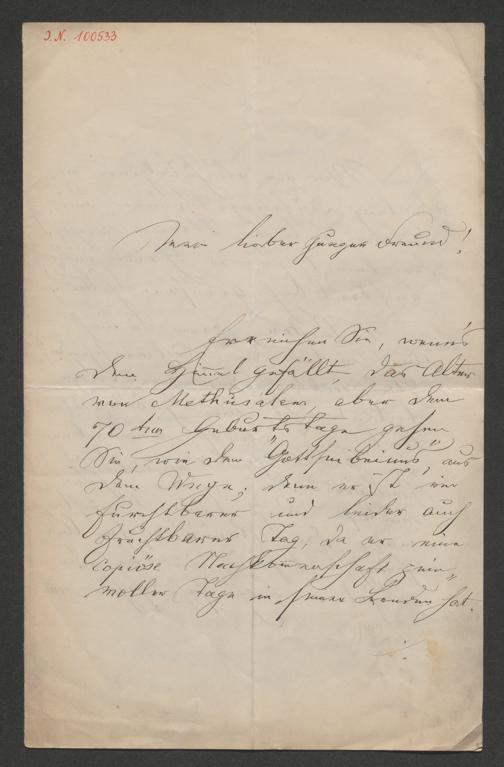 J.N. 100533
Mein lieber junger Freund!
Erreichen Sie, wenn's
dem Himel gefällt, das Alter
von Methusalem, aber dem
70 ten Geburtstage gehen
Sie, wie dem "Gottseibeiuns", aus
dem Wege; denn er ist ein
furchtbarer und leider auch
fruchtbarer Tag, da er eine
copiöse Nachkomenschaft pein-
voller Tage in seinen Lenden hat.